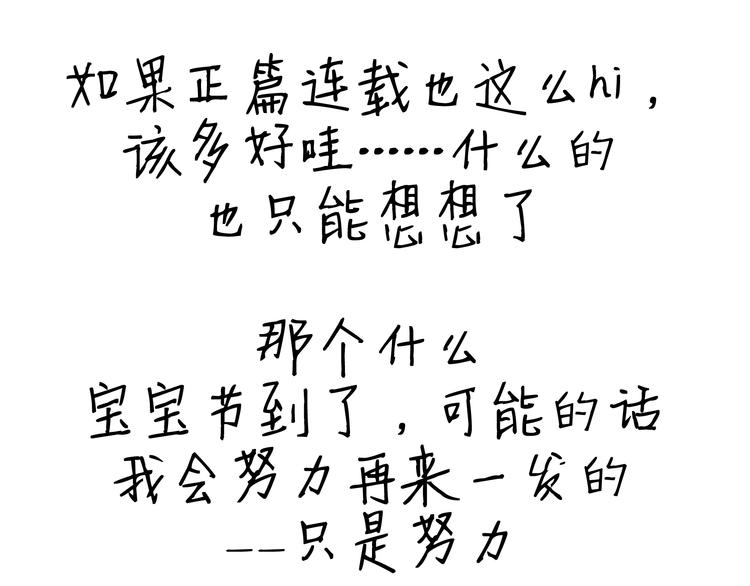 如果正篇连载也这么hi，
该多好哇……什么的
也只能想想了
那个什么
宝宝节到了，可能的话
我会努力再来一发的
——只是努力